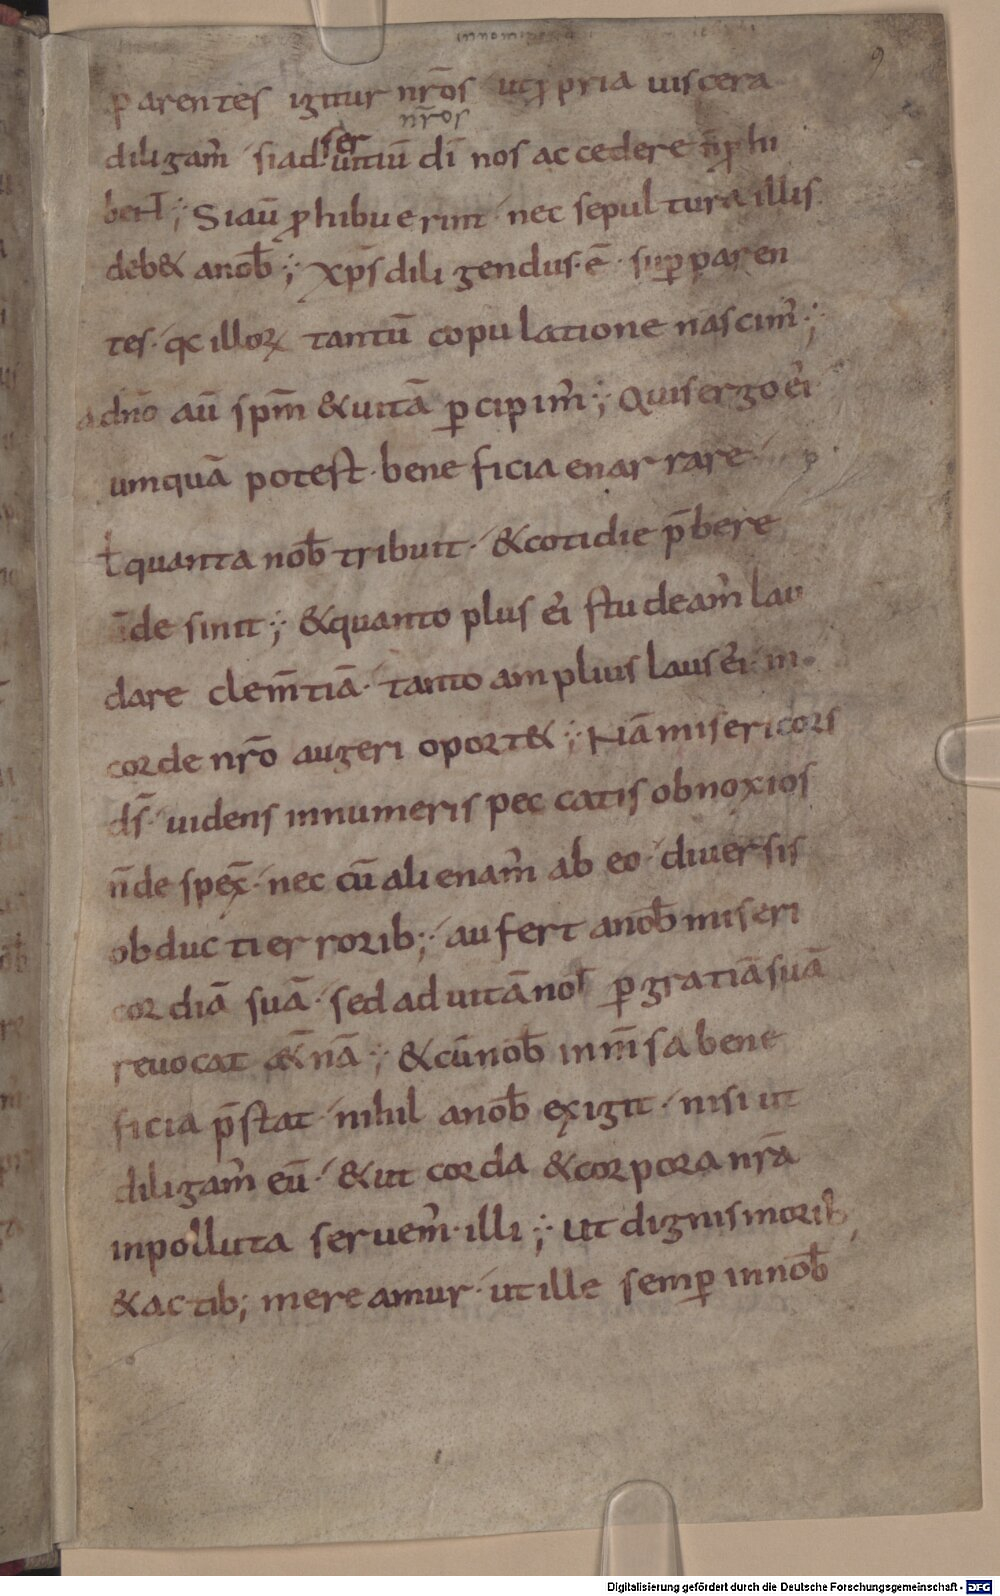 9
parentes igitur nr̄os ut ꝓpria uiscera
nr̄os
diligam̄ si ad seruitiū dī nos accedere n̄ ꝓhi
bent; Si aū ꝓhibuerint · nec sepultura illis
deb& a nob̄; xp̄s diligendus · ē · suꝑ paren
tes · qc illoꝝ tantū copulatione nascim̄;
a dn̄o aū sp̄m & uitā ꝑcipim̄; Quis ergo ei
umquā potest · beneficia enarrare
ł quanta nob̄ tribuit · & cotidie p̄bere
n̄ desinit; & quanto plus ei studeam̄ lau
dare clem̄tiā · tanto amplius laus ei in
corde nr̄o augeri oport&; Nā misericors
ds̄ uidens innumeris peccatis obnoxios
n̄ despex̄ · nec cū alienam̄ ab eo · diuersis
obducti errorib; · aufert a nob̄ miseri
cordiā suā · sed ad uitā nos ꝑ gratiā suā
reuocat æt̄nā; & cū nob̄ inm̄sa bene
ficia p̄stat · nihil a nob̄ exigit · nisi ut
diligam̄ eū · & ut corda & corpora nr̄a
inpolluta seruem̄ · illi; ut dignis morib;
& actib; mereamur · ut ille semꝑ in nob̄
Digitalisierung gefördert durch die Deutsche Forschungsgemeinschaft - DFG